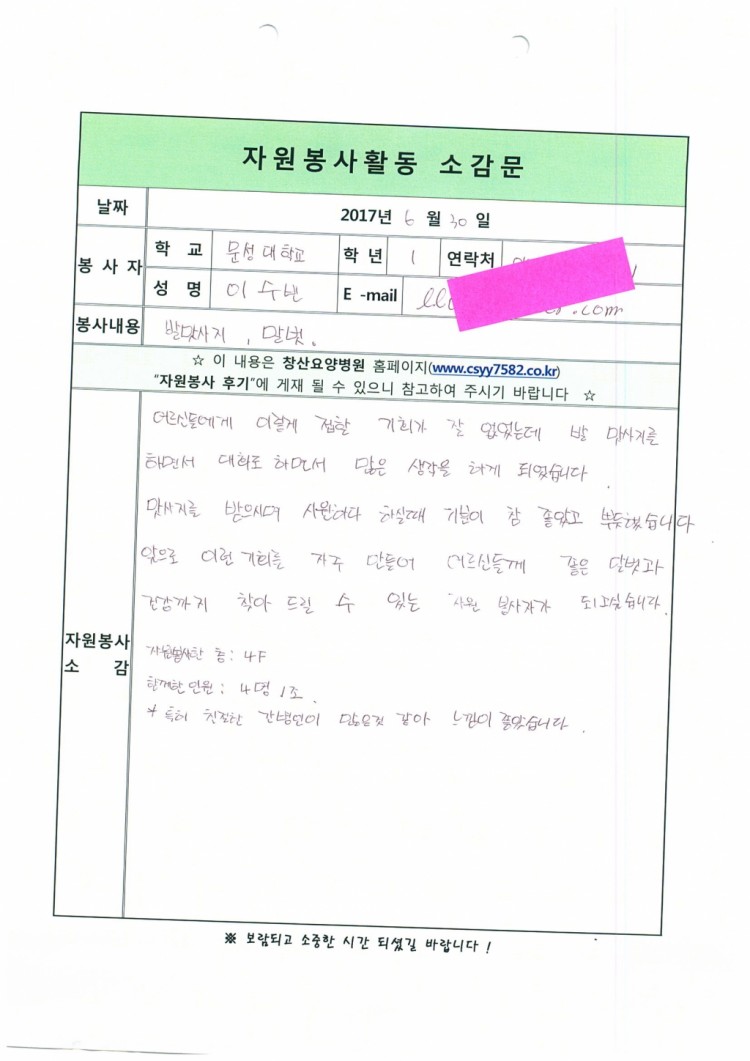 자원봉사활동 소감문
날짜 2017년 6 월 30 일
봉사자 학 교 문성대학교 학 년 1 연락처
성 명 이수빈 E -mail .com
봉사내용 발마사지, 말벗.
☆ 이 내용은 창산요양병원 홈페이지(www.csyy7582.co.kr)
"자원봉사 후기"에 게재 될 수 있으니 참고하여 주시기 바랍니다 ☆
자원봉사 소 감
어르신들에게 이렇게 접할 기회가 잘 없었는데 발 마사지를
하면서 대화도 하면서 많은 생각을 하게 되었습니다.
맛사지를 받으시며 시원하다 하실때 기분이 참 좋았고 뿌듯했습니다
앞으로 이런 기회를 자주 만들어 어르신들께 좋은 말벗과
건강까지 찾아 드릴 수 있는 자원 봉사자가 되고싶습니다.
자원봉사한 층 : 4F
함께한 인원 : 4명 1조.
* 특히 친절한 간병인이 많은것 같아 느낌이 좋았습니다.
※ 보람되고 소중한 시간 되셨길 바랍니다 !